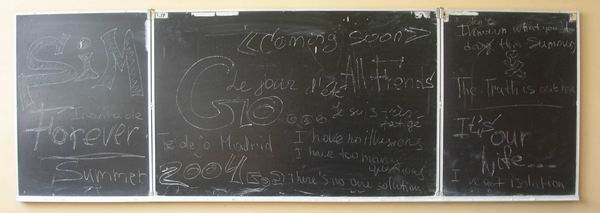 SiM
Forever
Summer
<<Coming soon>>
Le jour
All Friends
Go...
Je suis très
fatigé
Te dejo Madrid
I have no illusions
I have too many
questions
2004
There's no one solution
I know what you
this Summer
The Truth is out there
It's
our
life...